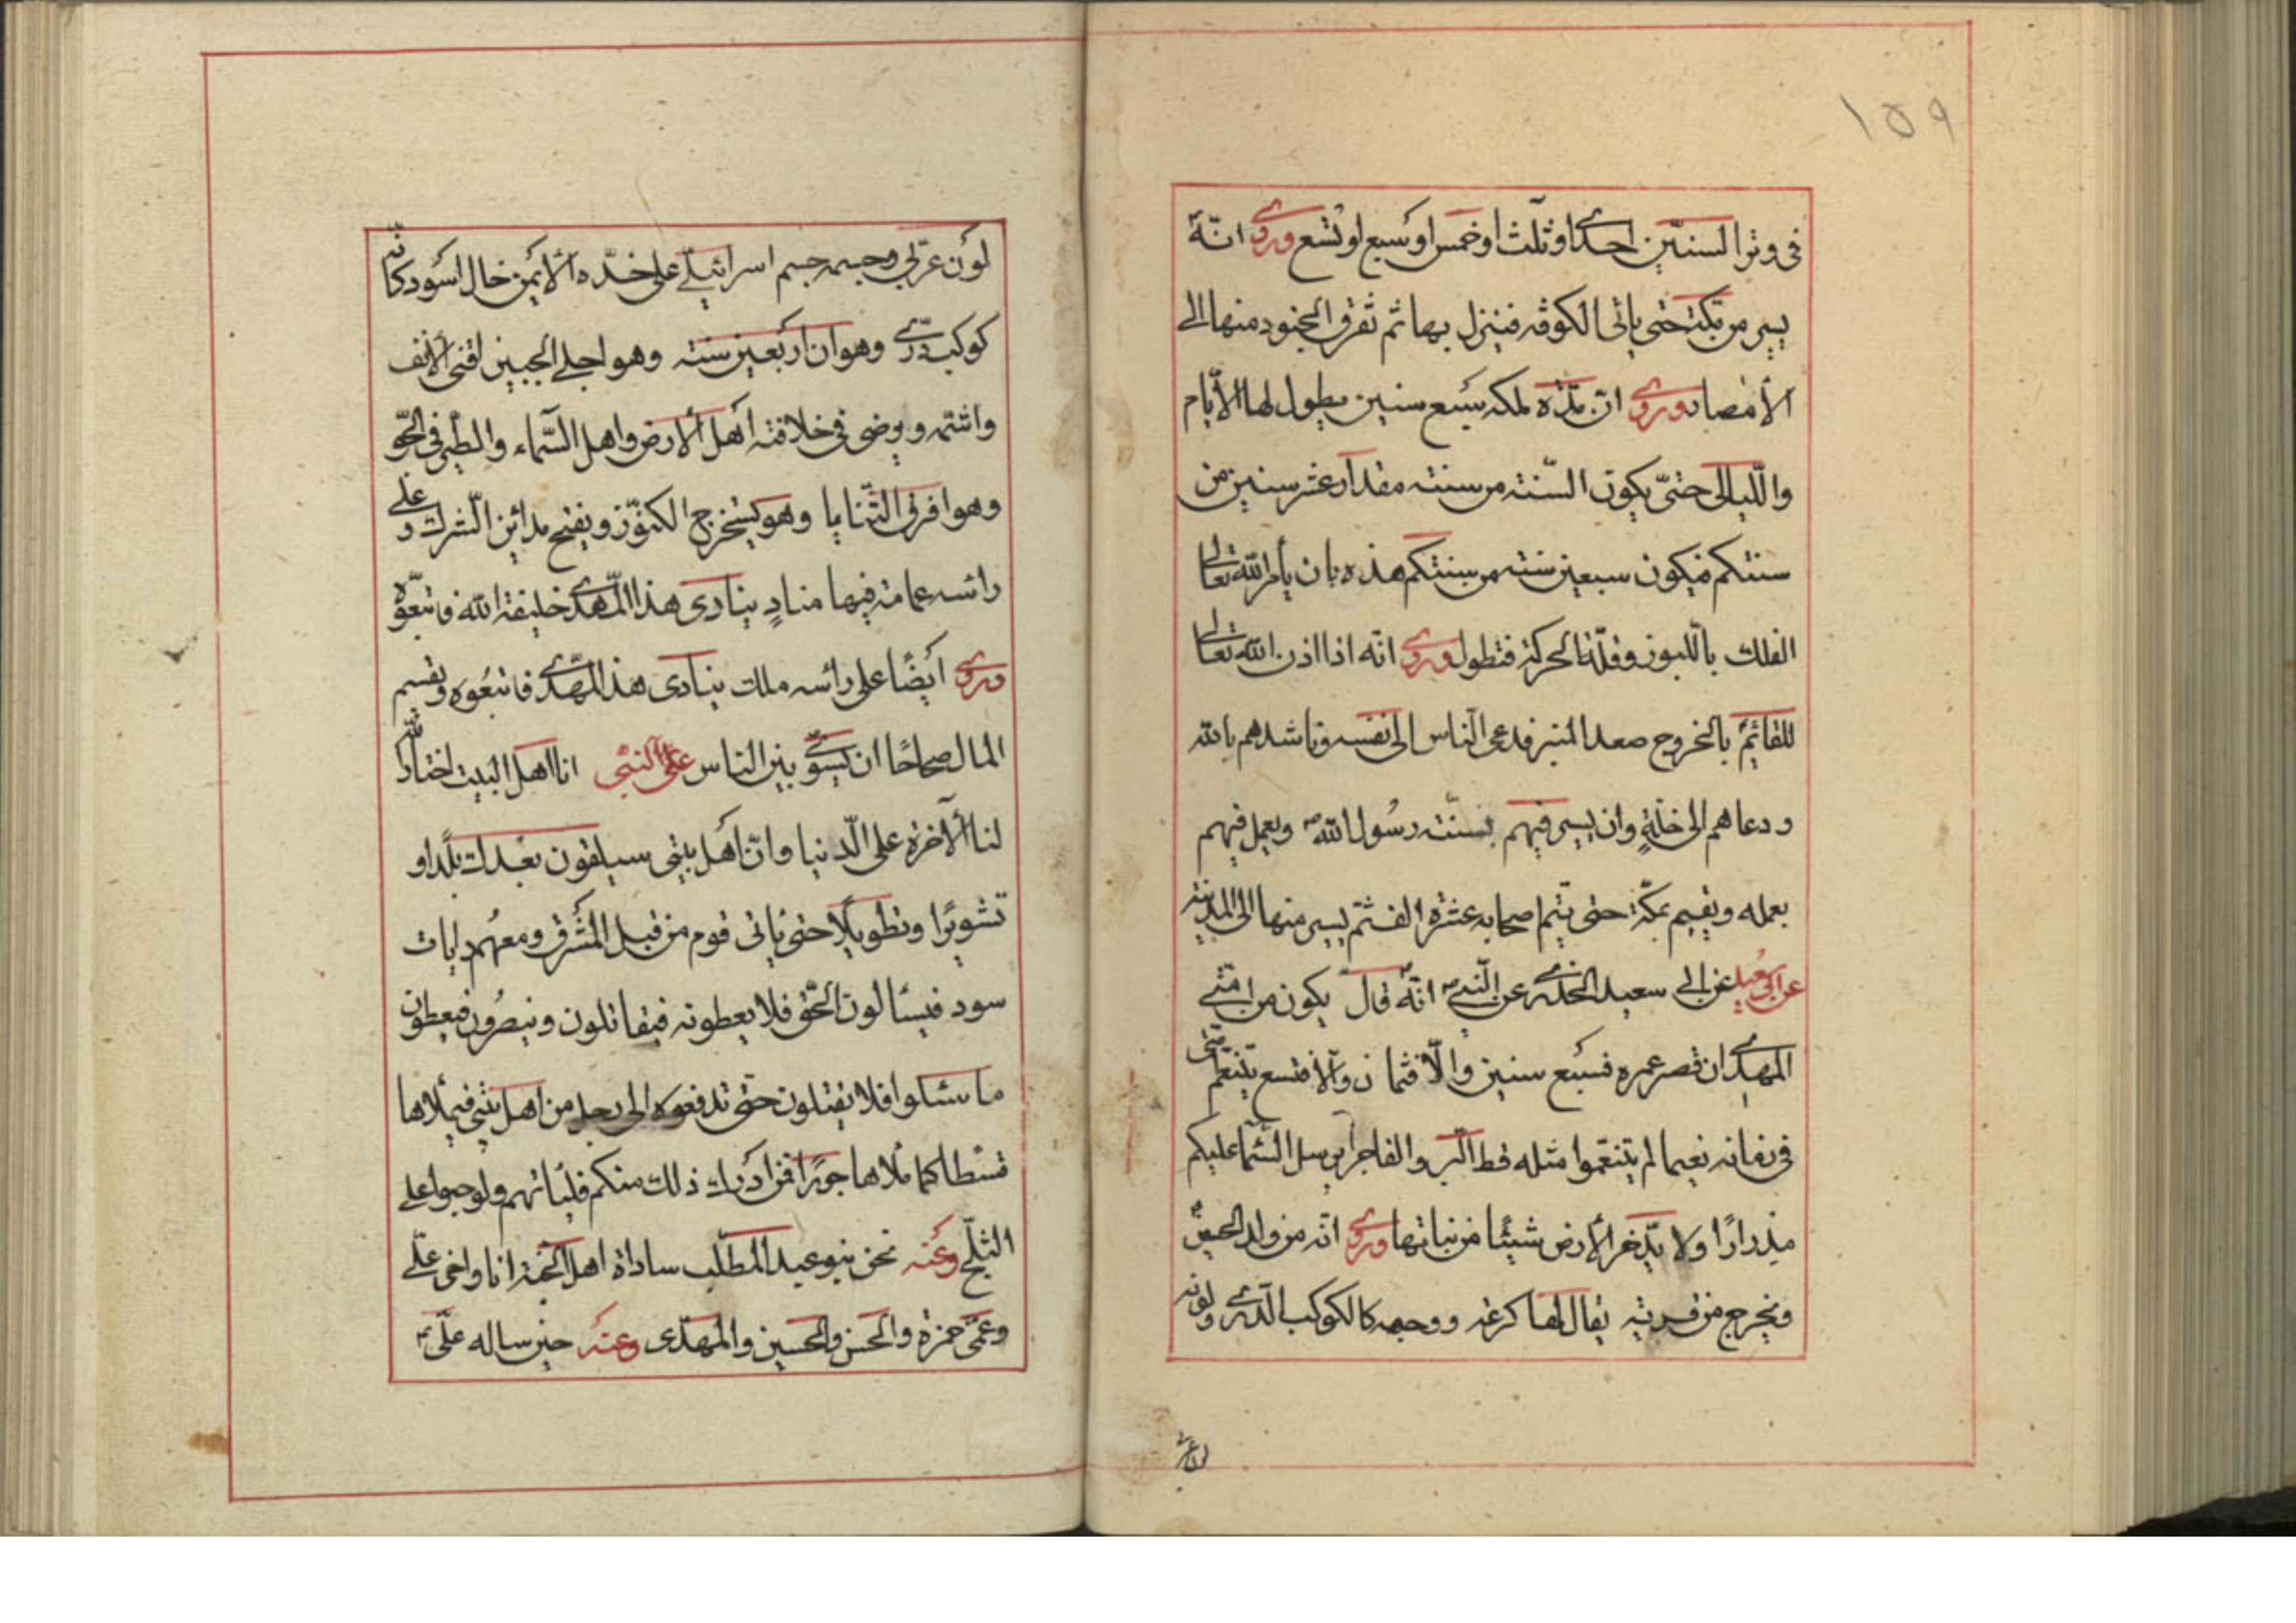 ١٥٩
فی وتر السنین احدی او ثلث او خمس او سبع او تسع وروی انّه
یسیر من مکة حتی یاتی الکوفه فینزل بها ثم تفرق الجنود منها الی
الأمصار وروی ان مدّة ملکه سبع سنین یطول لها الأیّام
واللّیالی حتیّ یکون السّنته من سنته مقدار عشر سنین من
سنتکم فیکون سبعین سنته من سنتکم هذه بان یأمر الله تعالی
الفلک باللبوث وقلّة الحرکة فتطول وروی انه اذا اذن الله تعالی
للقائم بالخروج صعد المنبر فدعی الناس الی نفسه وناشدهم بالله
ودعاهم الی حقّه وان یسیر فیهم بسنّته رسول الله ویعمل فیهم
بعمله ویقیم بمکّة حتی یتم اصحابه عشرة الف ثمّ یسیر منها الی المدینة
عن ابی سعید الخدری عن النّبی انّه قال یکون من امتی
المهدی ان قصر عمره فسبع سنین والّا فثمان والّا فتسع یتنعّم امّتی
فی زمانه نعیما لم یتنعّموا مثله قط البر والفاجر یرسل السّماء علیکم
مدرارًا ولا یدّخر الأرض شیئًا من نباتها وروی انّه من ولد الحسین
ویخرج من قریته یقال لها کرعه ووجهه کالکوکب الدّری ولونه
لون عر
لون عربی وجسمه جسم اسرائیلی علی خدّه الأیمن خال اسود کانّه
کوکب درّی وهو ابن اربعین سنته وهو اجلی الجبین اقنی الأنف
واشتم ویرضی فی خلافته اهل الارض واهل السّماء والطّیر فی الجوّ
وهو افرق الثّنایا وهو یستخرج الکنوز ویفتح مدائن الشرک وعلی
رأسه عمامة فیها منادٍ ینادی هذا المهدی خلیفة الله فاتبعوه
وروی أیضًا علی رأسه ملک ینادی هذا المهدی فاتبعوه ویقسم
المال صحاحًا ان یسوّی بین الناس عن النّبی انا اهل البیت اختار الله
لنا الآخرة علی الدّنیا وانّ اهل بیتی سیلقون بعدی بلاء و
تشویرًا وتطویلًا حتی یاتی قوم من قبل المشرق ومعهم رایات
سود فیسألون الحق فلا یعطونه فیقاتلون وینصرون فیعطون
ما سئلوا فلا یقبلون حتّی تدفعوه الی رجل من اهل بیتی فیملاها
قسطا کما ملاها جورًا فمن ادرک ذلک منکم فلیاتهم ولو حبوا علی
الثلج وعنه نحن بنو عبد المطّلب ساداة اهل الجنة انا واخی علّی
وعمّی حمزة والحسن والحسین والمهدی وعنه حین ساله علّی